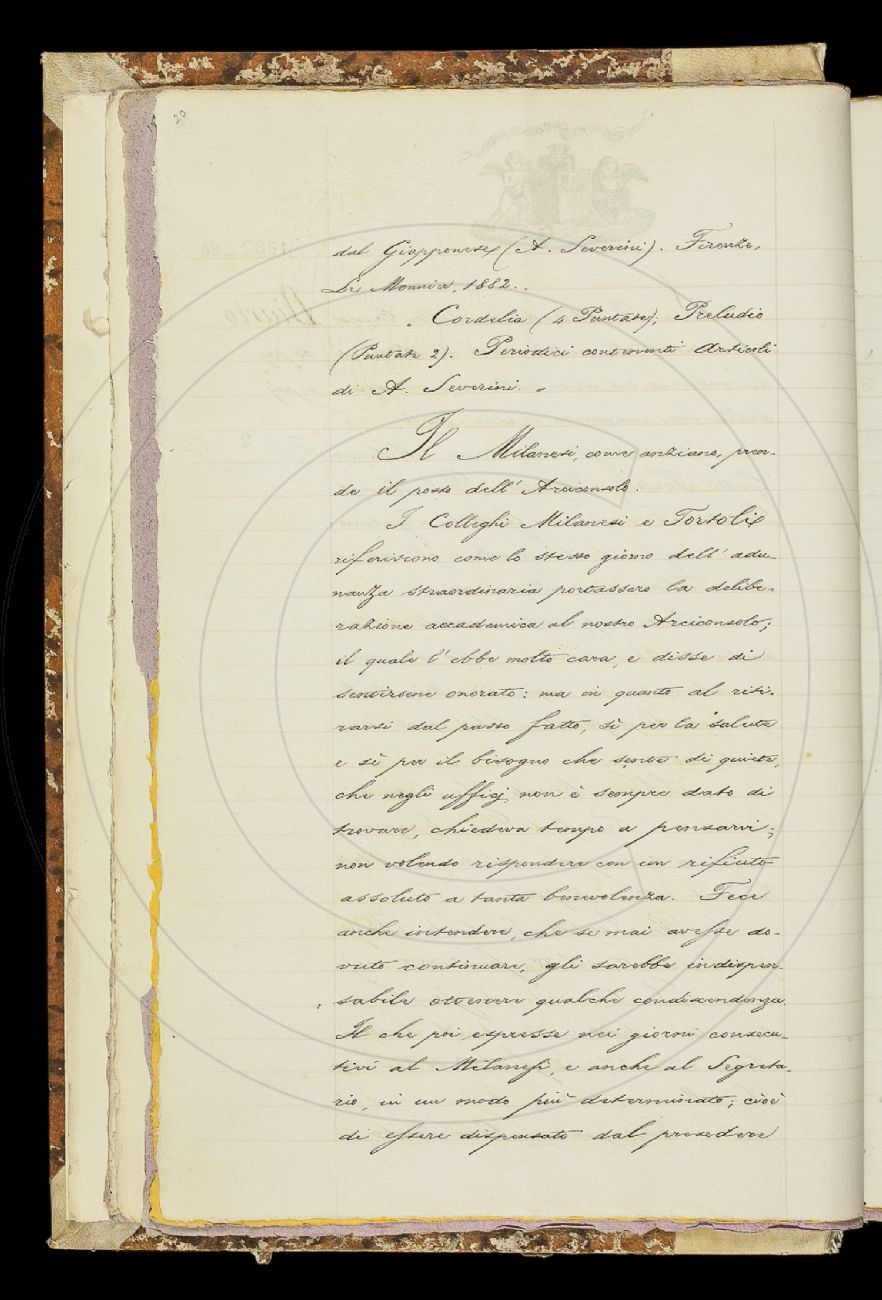 20
dal Giapponese (A. Severini). Firenze,
Le Monnier, 1882.
Cordelia (4 Puntate); Preludio
(Puntate 2). Periodici contenenti Articoli
di A. Severini. „
Il Milanesi, come anziano, pren-
de il posto dell' Arciconsolo.
I Colleghi Milanesi e Tortoli
riferiscono come lo stesso giorno dell' adu-
nanza straordinaria portassero la delibe-
razione accademica al nostro Arciconsolo;
il quale l' ebbe molto cara, e disse di
sentirsene onorato: ma in quanto al riti-
rarsi dal passo fatto, sì per la salute
e sì per il bisogno che sente di quiete,
che negli ufficj non è sempre dato di
trovare, chiedeva tempo a pensarvi;
non volendo rispondere con un rifiuto
assoluto a tanta benevolenza. Fece
anche intendere, che se mai avesse do-
vuto continuare, gli sarebbe indispen-
sabile ottenere qualche condiscendenza.
Il che poi espresse nei giorni consecu-
tivi al Milanesi, e anche al Segreta-
rio, in un modo più determinato; cioè
di essere dispensato dal presedere